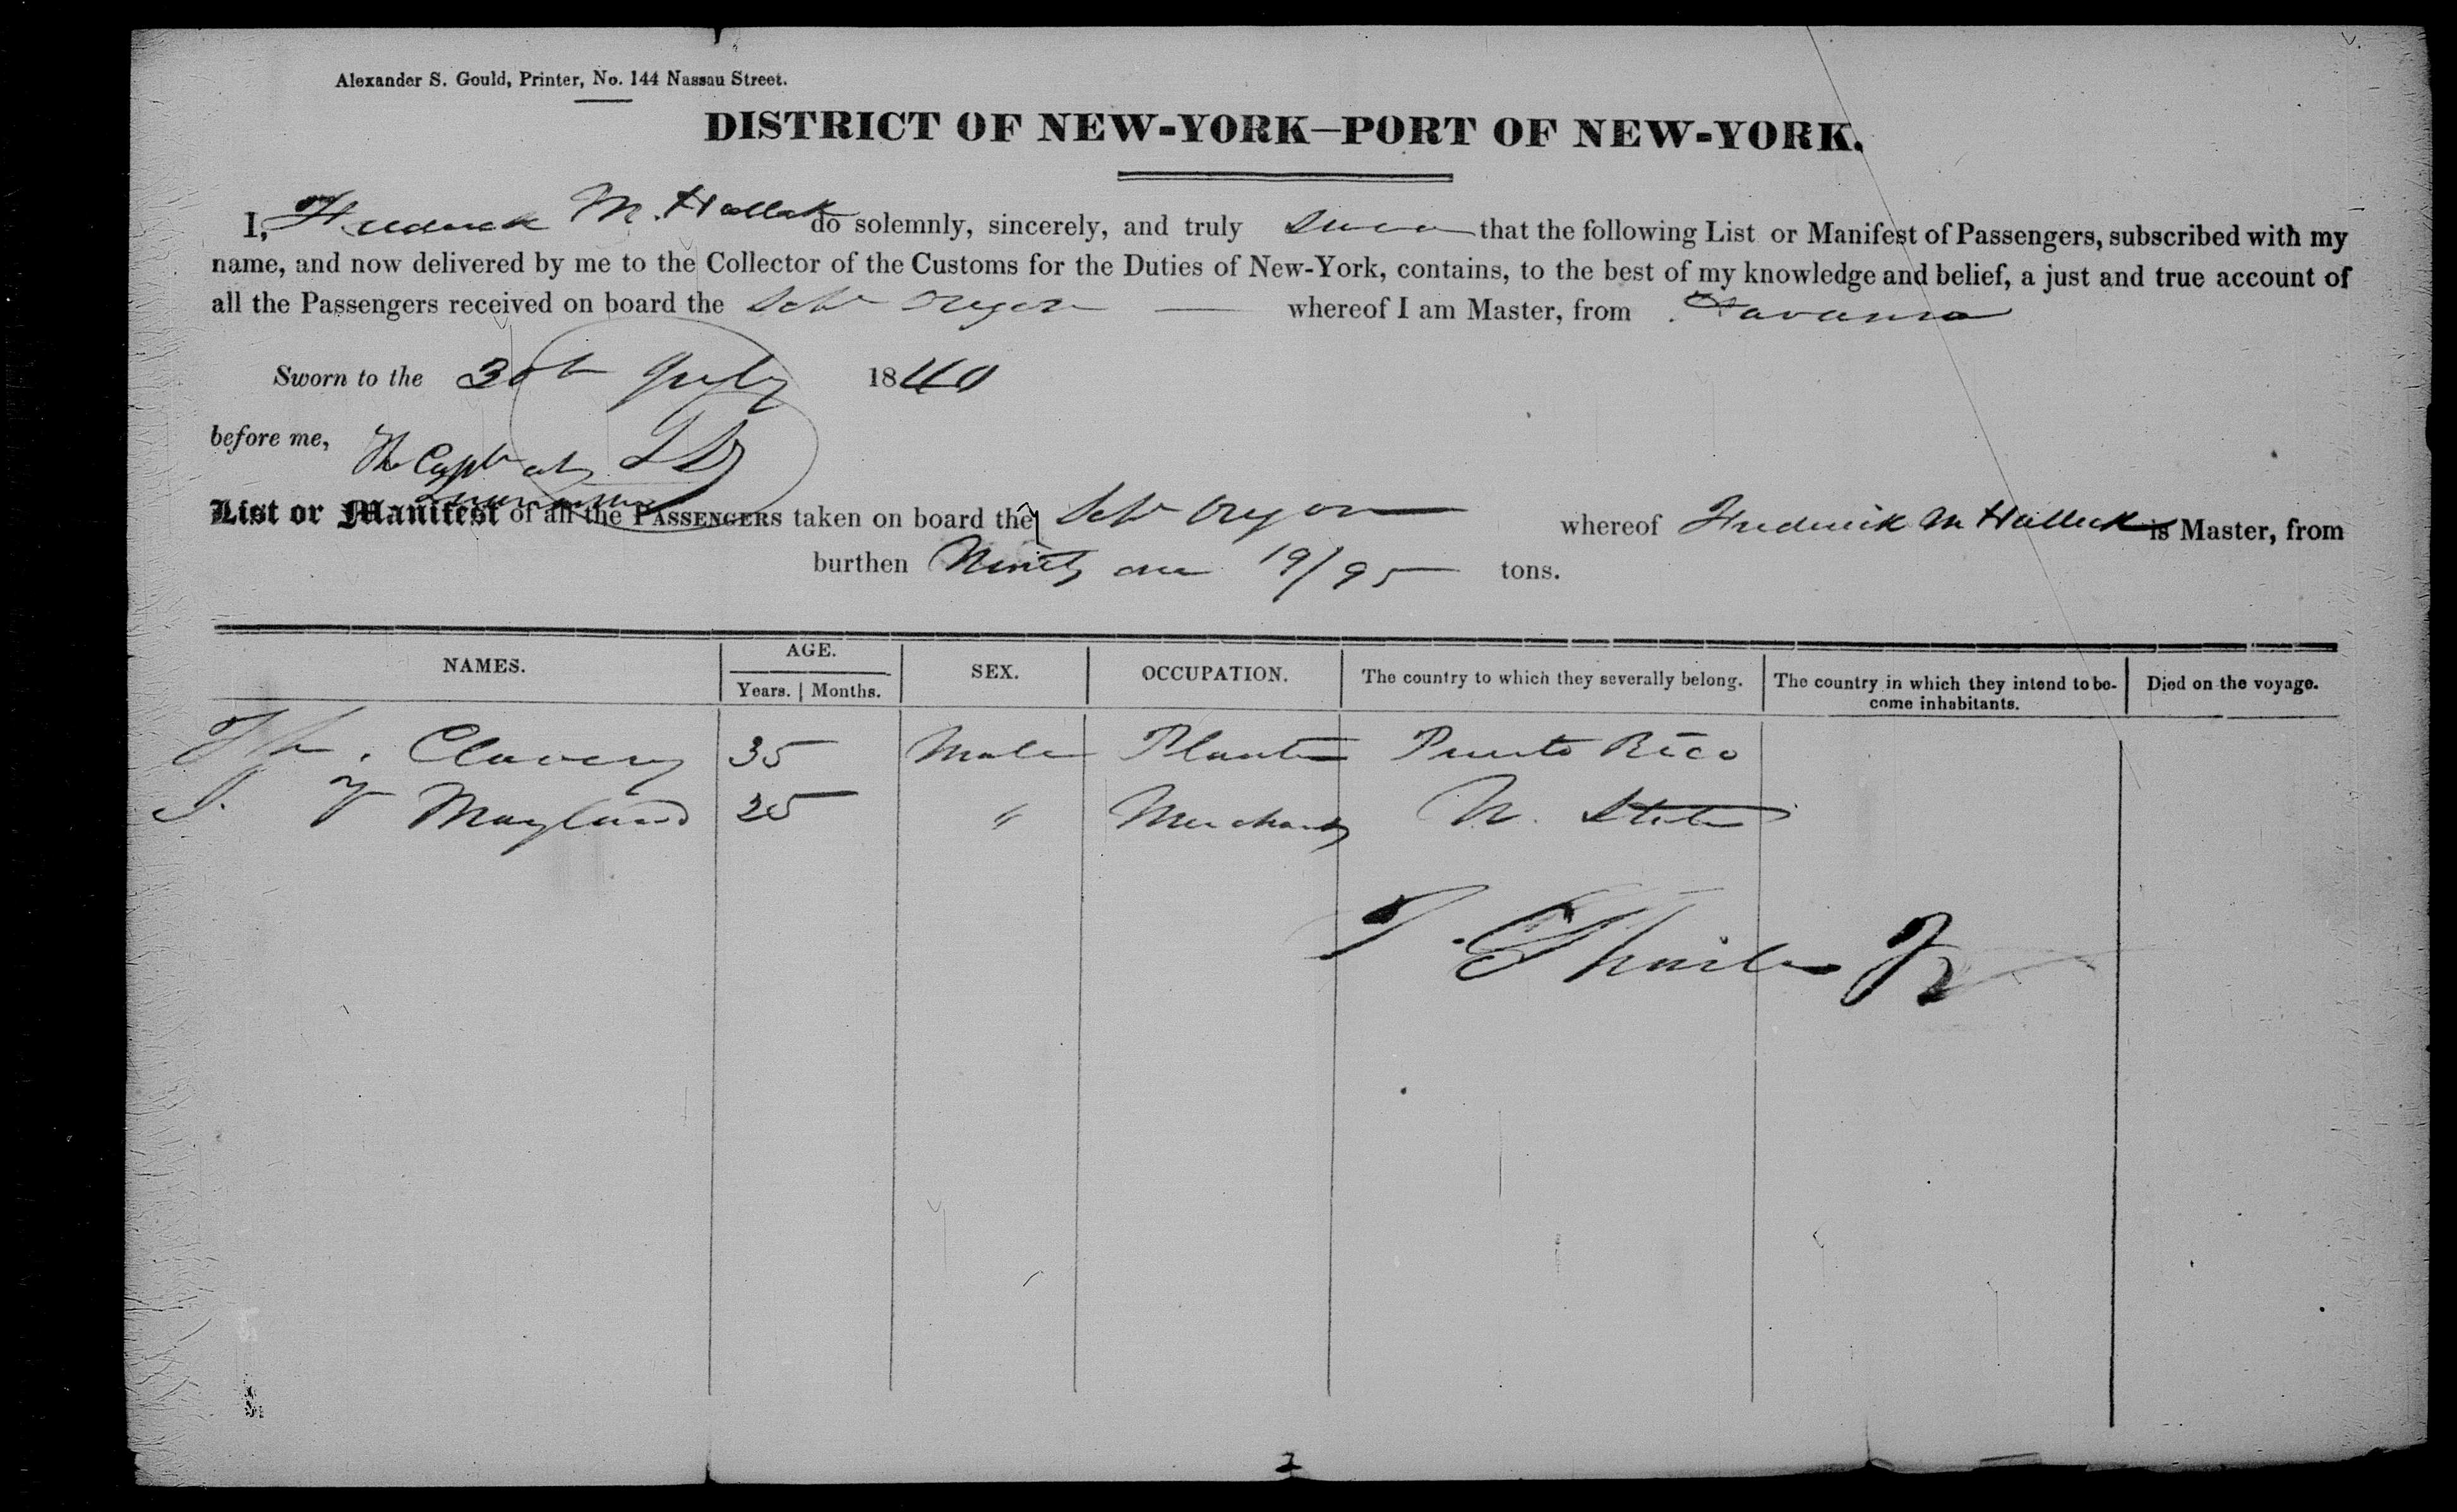 Alexander S. Gould, Printer, No. 144 Nassau Street.
DISTRICT OF NEW-YORK—PORT OF NEW-YORK.
I, Frederick M. Hallock do solemnly, sincerely, and truly swear that the following List or Manifest of Passengers, subscribed with my
name, and now delivered by me to the Collector of the Customs for the Duties of New-York, contains, to the best of my knowledge and belief, a just and true account of
all the Passengers received on board the Schr Oregon whereof I am Master, from Havanna
Sworn to the 30th July 1840
before me, The Capt
List or Manifest of all the PASSENGERS taken on board the Schr Oregon whereof Frederick M Hallock is Master, from
burthen Ninety one 19/95 tons.
NAMES. AGE. SEX. OCCUPATION. The country to which they severally belong. The country in which they intend to be- Died on the voyage.
Years. Months. come inhabitants.
Clavery 35 Male Planter Puerto Rico
Mayland 25 " Merchant U. States
T. Jr
2